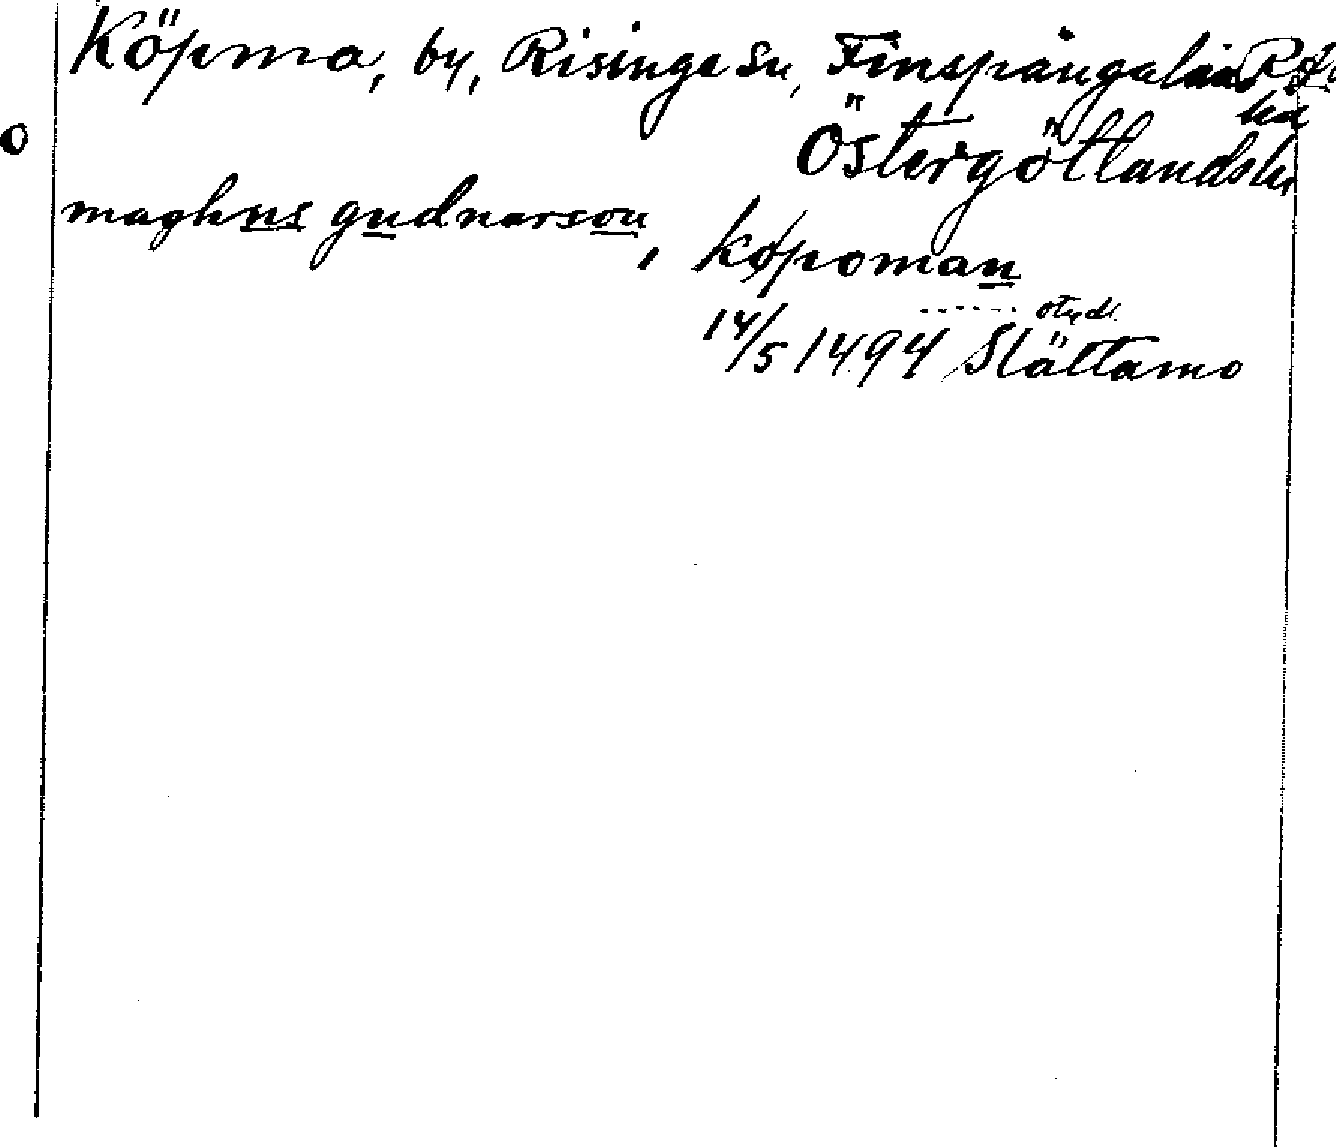 Köpma, by, Risinge sn, Finspångaläns
hd
Östergötlands län
maghns gudnarson, køpoman
otydl.
14/5 1494 Slättamo